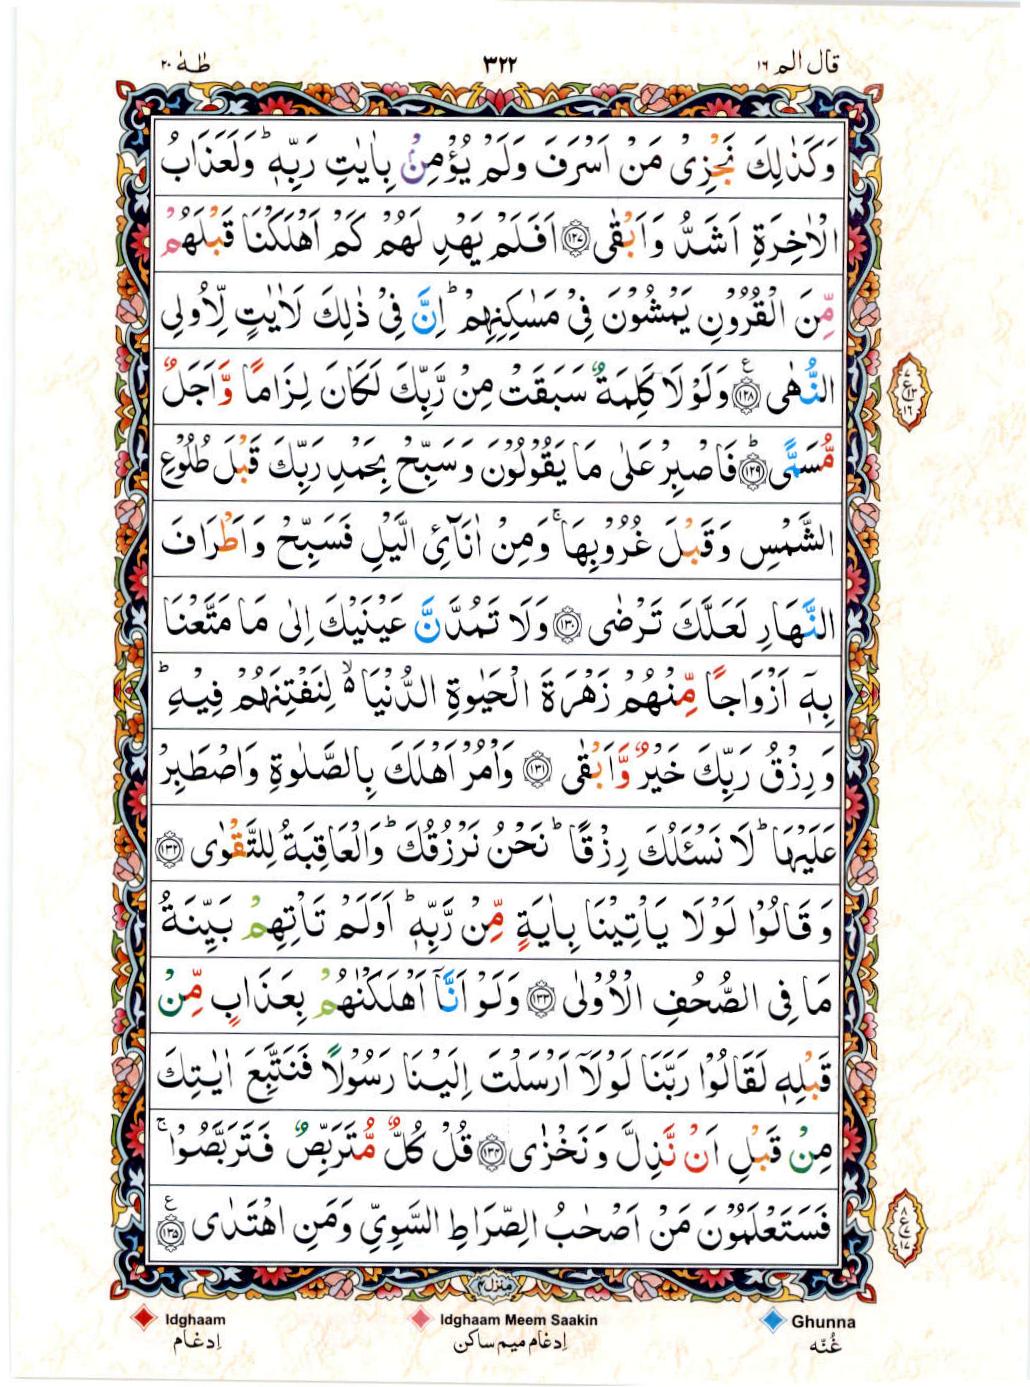 طٰهٰ ۲۰
۳۲۲
قال الم ۱۶
وَكَذٰلِكَ نَجْزِىْ مَنْ اَسْرَفَ وَلَمْ يُؤْمِنْۢ بِاٰيٰتِ رَبِّهٖ ؕ وَلَعَذَابُ
الْاٰخِرَةِ اَشَدُّ وَاَبْقٰى ﴿۱۲۷﴾ اَفَلَمْ يَهْدِ لَهُمْ كَمْ اَهْلَكْنَا قَبْلَهُمْ
مِّنَ الْقُرُوْنِ يَمْشُوْنَ فِىْ مَسٰكِنِهِمْ ؕ اِنَّ فِىْ ذٰلِكَ لَاٰيٰتٍ لِّاُولِى
النُّهٰى ﴿۱۲۸﴾ ع وَلَوْلَا كَلِمَةٌ سَبَقَتْ مِنْ رَّبِّكَ لَكَانَ لِزَامًا وَّاَجَلٌ
مُّسَمًّى ؕ ﴿۱۲۹﴾ فَاصْبِرْ عَلٰى مَا يَقُوْلُوْنَ وَسَبِّحْ بِحَمْدِ رَبِّكَ قَبْلَ طُلُوْعِ
الشَّمْسِ وَقَبْلَ غُرُوْبِهَا ۚ وَمِنْ اٰنَآئِ الَّيْلِ فَسَبِّحْ وَاَطْرَافَ
النَّهَارِ لَعَلَّكَ تَرْضٰى ﴿۱۳۰﴾ وَلَا تَمُدَّنَّ عَيْنَيْكَ اِلٰى مَا مَتَّعْنَا
بِهٖۤ اَزْوَاجًا مِّنْهُمْ زَهْرَةَ الْحَيٰوةِ الدُّنْيَا ۙ۬ لِنَفْتِنَهُمْ فِيْهِ ؕ
وَرِزْقُ رَبِّكَ خَيْرٌ وَّاَبْقٰى ﴿۱۳۱﴾ وَاْمُرْ اَهْلَكَ بِالصَّلٰوةِ وَاصْطَبِرْ
عَلَيْهَا ؕ لَا نَسْئَلُكَ رِزْقًا ؕ نَحْنُ نَرْزُقُكَ ؕ وَالْعَاقِبَةُ لِلتَّقْوٰى ﴿۱۳۲﴾
وَقَالُوْا لَوْلَا يَاْتِيْنَا بِاٰيَةٍ مِّنْ رَّبِّهٖ ؕ اَوَلَمْ تَاْتِهِمْ بَيِّنَةُ
مَا فِى الصُّحُفِ الْاُوْلٰى ﴿۱۳۳﴾ وَلَوْ اَنَّاۤ اَهْلَكْنٰهُمْ بِعَذَابٍ مِّنْ
قَبْلِهٖ لَقَالُوْا رَبَّنَا لَوْلَاۤ اَرْسَلْتَ اِلَيْنَا رَسُوْلًا فَنَتَّبِعَ اٰيٰتِكَ
مِنْ قَبْلِ اَنْ نَّذِلَّ وَنَخْزٰى ﴿۱۳۴﴾ قُلْ كُلٌّ مُّتَرَبِّصٌ فَتَرَبَّصُوْا ۚ
فَسَتَعْلَمُوْنَ مَنْ اَصْحٰبُ الصِّرَاطِ السَّوِىِّ وَمَنِ اهْتَدٰى ﴿۱۳۵﴾ ع
منزل ۴
Idghaam
Idghaam Meem Saakin
Ghunna
اِدغام
اِدغام میم ساکن
غُنّہ